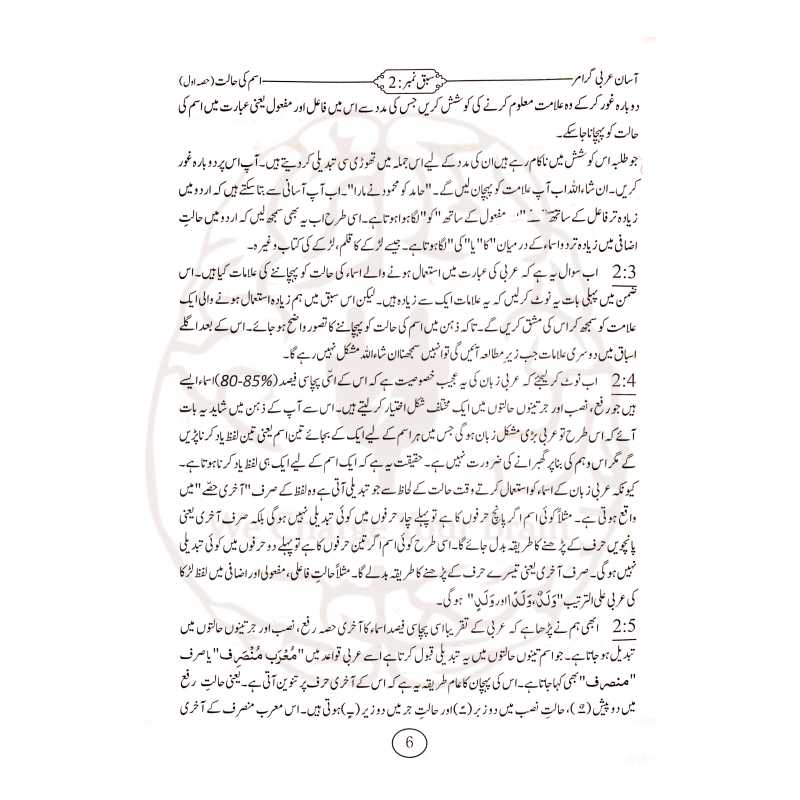 آسان عربی گرامر سبق نمبر: 2 اسم کی حالت (حصہ اول)
دوبارہ غور کر کے وہ علامت معلوم کرنے کی کوشش کریں جس کی مدد سے اس میں فاعل اور مفعول یعنی عبارت میں اسم کی
حالت کو پہچانا جا سکے۔
جو طلبہ اس کوشش میں ناکام رہے ہیں ان کی مدد کے لیے اس جملہ میں تھوڑی سی تبدیلی کر دیتے ہیں۔ آپ اس پر دوبارہ غور
کریں۔ ان شاء اللہ اب آپ علامت کو پہچان لیں گے۔ "حامد کو محمود نے مارا"۔ اب آپ آسانی سے بتا سکتے ہیں کہ اردو میں
زیادہ تر فاعل کے ساتھ مفعول کے ساتھ "کو" لگا ہوا ہوتا ہے۔ اسی طرح اب یہ بھی سمجھ لیں کہ اردو میں حالتِ
اضافی میں زیادہ تر دو اسماء کے درمیان "کا" یا "کی" لگا ہوتا ہے۔ جیسے لڑکے کا قلم، لڑکے کی کتاب وغیرہ۔
2:3 اب سوال یہ ہے کہ عربی کی عبارت میں استعمال ہونے والے اسماء کی حالت کو پہچاننے کی علامات کیا ہیں۔ اس
ضمن میں پہلی بات یہ نوٹ کر لیں کہ یہ علامات ایک سے زیادہ ہیں۔ لیکن اس سبق میں ہم زیادہ استعمال ہونے والی ایک
علامت کو سمجھ کر اس کی مشق کریں گے۔ تاکہ ذہن میں اسم کی حالت کو پہچاننے کا تصور واضح ہو جائے۔ اس کے بعد اگلے
اسباق میں دوسری علامات جب زیرِ مطالعہ آئیں گی تو انہیں سمجھنا ان شاء اللہ مشکل نہیں رہے گا۔
2:4 اب نوٹ کر لیجئے کہ عربی زبان کی یہ عجیب خصوصیت ہے کہ اس کے اسّی پچاسی فیصد (80-85%) اسماء ایسے
ہیں جو رفع، نصب اور جر تینوں حالتوں میں ایک مختلف شکل اختیار کر لیتے ہیں۔ اس سے آپ کے ذہن میں شاید یہ بات
آئے کہ اس طرح تو عربی بڑی مشکل زبان ہو گی جس میں ہر اسم کے لیے ایک کے بجائے تین اسم یعنی تین لفظ یاد کرنا پڑیں
گے مگر اس وہم کی بنا پر گھبرانے کی ضرورت نہیں ہے۔ حقیقت یہ ہے کہ ایک اسم کے لیے ایک ہی لفظ یاد کرنا ہوتا ہے۔
کیونکہ عربی زبان کے اسماء کو استعمال کرتے وقت حالت کے لحاظ سے جو تبدیلی آتی ہے وہ لفظ کے صرف "آخری حصّے" میں
واقع ہوتی ہے۔ مثلاً کوئی اسم اگر پانچ حرفوں کا ہے تو پہلے چار حرفوں میں کوئی تبدیلی نہیں ہو گی بلکہ صرف آخری یعنی
پانچویں حرف کے پڑھنے کا طریقہ بدل جائے گا۔ اسی طرح کوئی اسم اگر تین حرفوں کا ہے تو پہلے دو حرفوں میں کوئی تبدیلی
نہیں ہو گی۔ صرف آخری یعنی تیسرے حرف کے پڑھنے کا طریقہ بدلے گا۔ مثلاً حالتِ فاعلی، مفعولی اور اضافی میں لفظ لڑکا
کی عربی علی الترتیب "وَلَدٌ، وَلَدًا اور وَلَدٍ" ہو گی۔
2:5 ابھی ہم نے پڑھا ہے کہ عربی کے تقریباً اسی پچاسی فیصد اسماء کا آخری حصہ رفع، نصب اور جر تینوں حالتوں میں
تبدیل ہو جاتا ہے۔ جو اسم تینوں حالتوں میں یہ تبدیلی قبول کرتا ہے اسے عربی قواعد میں "مُعْرَب مُنْصَرِف" یا صرف
"منصرف" بھی کہا جاتا ہے۔ اس کی پہچان کا عام طریقہ یہ ہے کہ اس کے آخری حرف پر تنوین آتی ہے۔ یعنی حالتِ رفع
میں دو پیش (ـٌ)، حالتِ نصب میں دو زبر (ـً) اور حالتِ جر میں دو زیر (ـٍ) ہوتی ہیں۔ اس معرب منصرف کے آخری
6